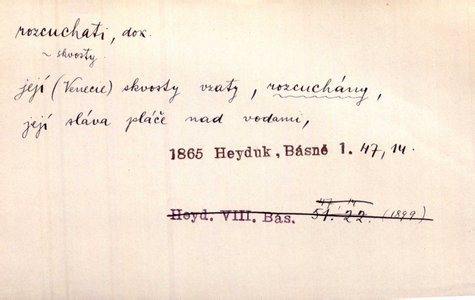 rozcuchati, dok.
~ skvosty.
její (Venecie) skvosty vzaty, rozcuchány,
její sláva pláče nad vodami,
1865 Heyduk, Básně 1. 47, 14.
47 14
Heyd. VIII. Bás. 51. 22. (1899)